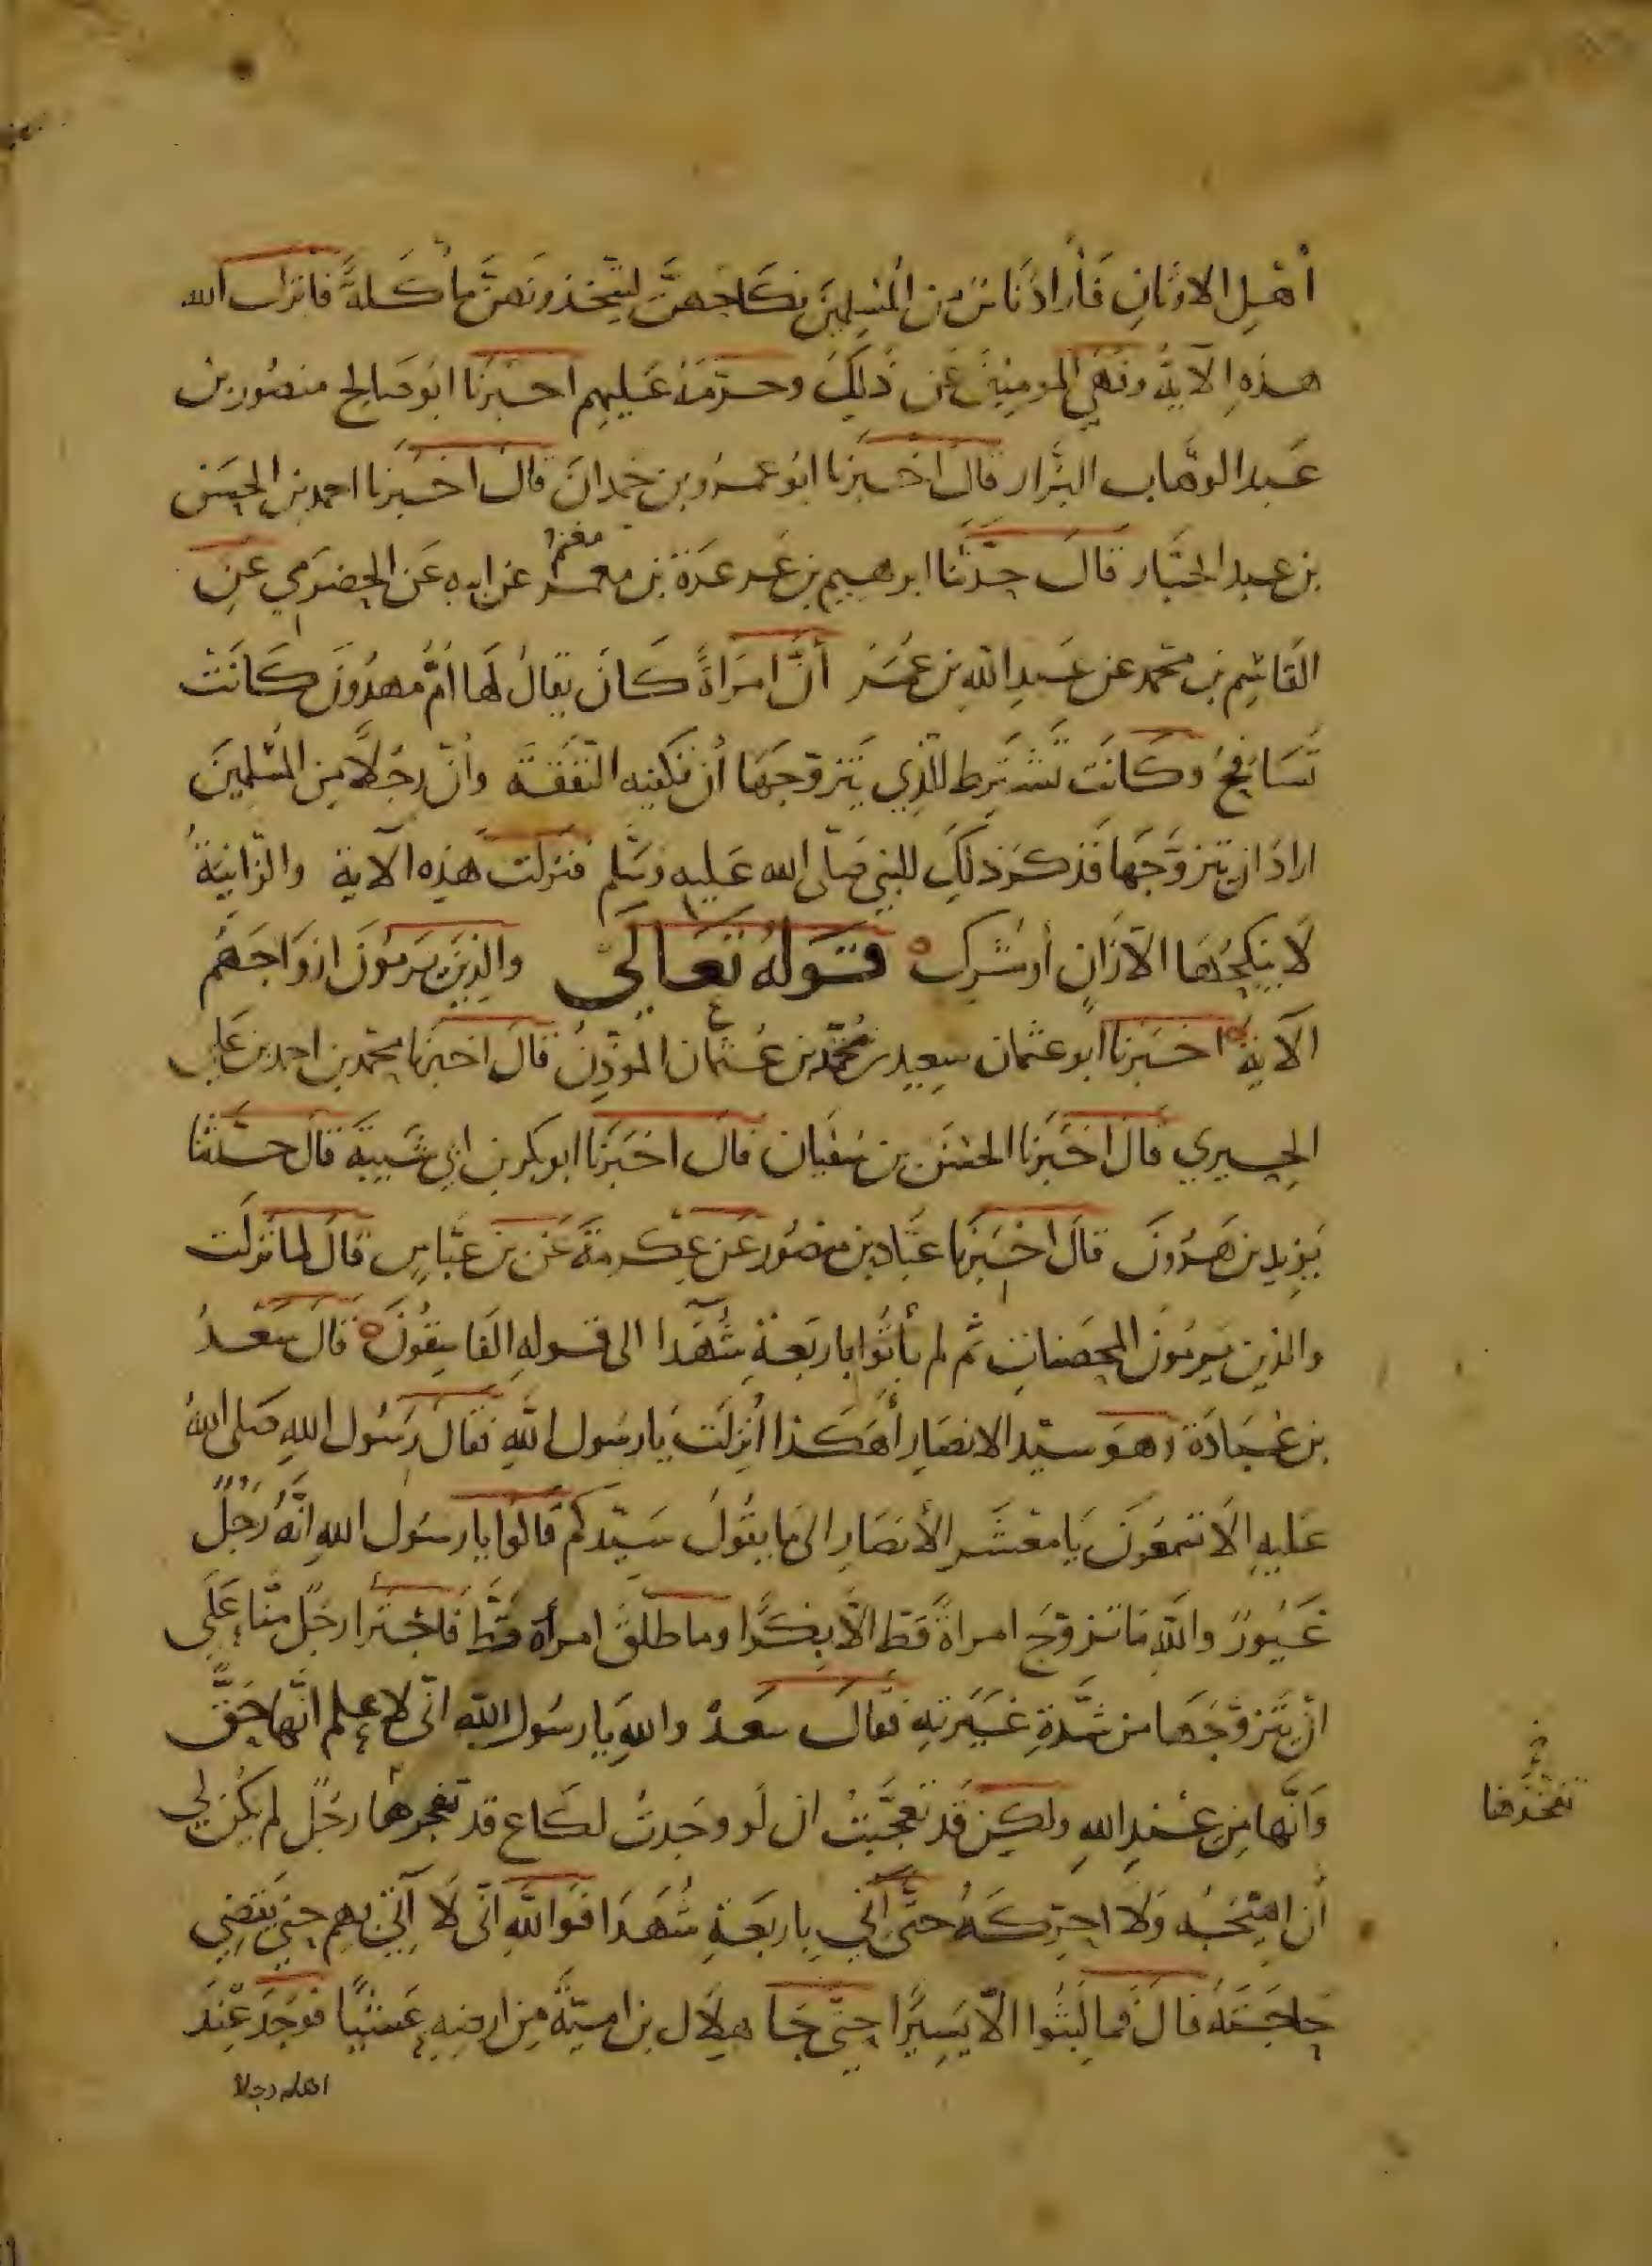 أهل الاوثان فأراد ناس من المسلمين نكاحهن ليتخذونهن مأكلة فانزل الله
هذه الآية ونهى المومنين عن ذلك وحرمه عليهم اخبرنا ابو صالح منصور بن
عبد الوهاب البزار قال اخبرنا ابو عمرو بن حمدان قال اخبرنا احمد بن الحسن
بن عبد الجبار قال حدثنا ابرهيم بن عرعرة بن معمر عن ابيه عن الحضرمي عن
القاسم بن محمد عن عبد الله بن عمر أن امراة كان يقال لها ام مهدون كانت
تسافح وكانت تشترط للذي يتزوجها أن تكفيه النفقة وأن رجلا من المسلمين
اراد ان يتزوجها فذكر ذلك للنبي صلى الله عليه وسلم فنزلت هذه الآية والزانية
لا ينكحها الا زان أو مشرك قوله تعالى والذين يرمون ازواجهم
الآية اخبرنا ابو عثمان سعيد بن محمد بن عثمان المؤذن قال اخبرنا محمد بن احمد بن علي
الحيري قال اخبرنا الحسن بن سفيان قال اخبرنا ابو بكر بن ابي شيبة قال حدثنا
يزيد بن هرون قال اخبرنا عباد بن منصور عن عكرمة عن بن عباس قال لما نزلت
والذين يرمون المحصنات ثم لم يأتوا باربعة شهدا الى قوله الفاسقون قال سعد
بن عبادة وهو سيد الانصار أهكذا أنزلت يا رسول الله فقال رسول الله صلى الله
عليه الا تسمعون يا معشر الأنصار الى ما يقول سيدكم قالوا يا رسول الله انه رجل
غيور والله ما تزوج امراة قط الا بكرا وما طلق امرأة قط فاجترا رجل منا على
ان يتزوجها من شدة غيرته فقال سعد والله يا رسول الله انى لاعلم انها حق
وأنها من عند الله ولكن قد تعجبت ان لو وجدت لكاع قد تفجرها رجل لم يكن لي
أن اهيجه ولا احركه حتى آتي باربعة شهدا فوالله انى لا آتي بهم حتى يقضي
حاجته قال فما لبثوا الا يسيرا حتى جا هلال بن امية من ارضه عشيا فوجد عند
اهله رجلا